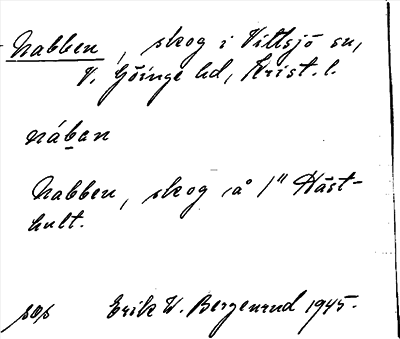 Nabben, skog i Vittsjö sn,
V. Göinge hd, Krist. l.
nában
Nabben, skog å 1" Häst-
hult.
Erik W. Bergenrud 1945.